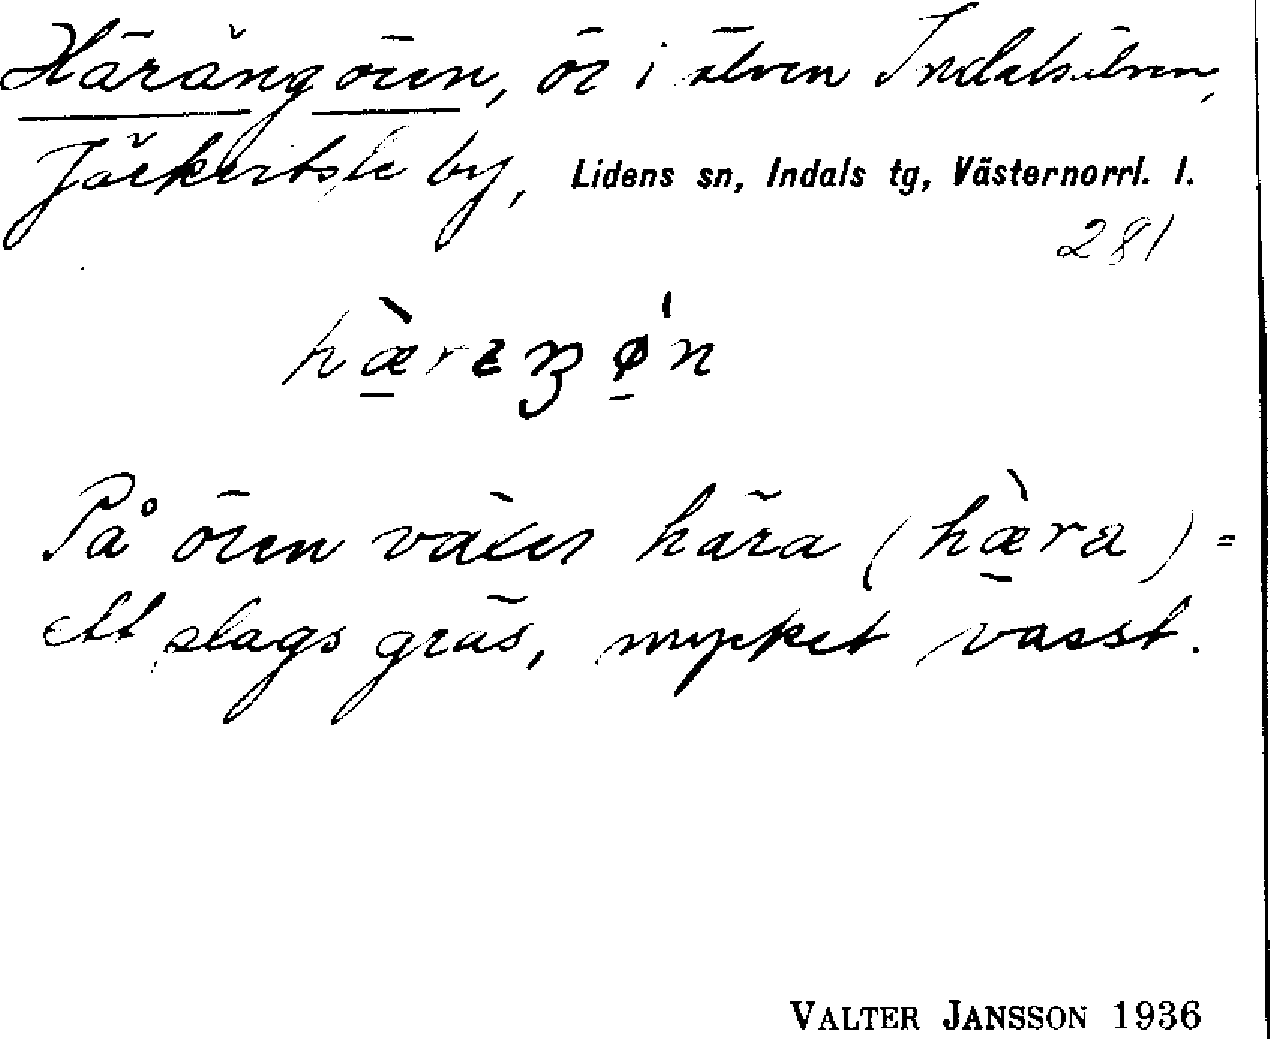 Härängören, ör i älven Indalsälven,
Jäckvitsle by, Lidens sn, Indals tg, Västernorrl. l.
281
På ören växer hära (hæ̀ra) =
ett slags gräs, mycket vasst.
VALTER JANSSON 1936